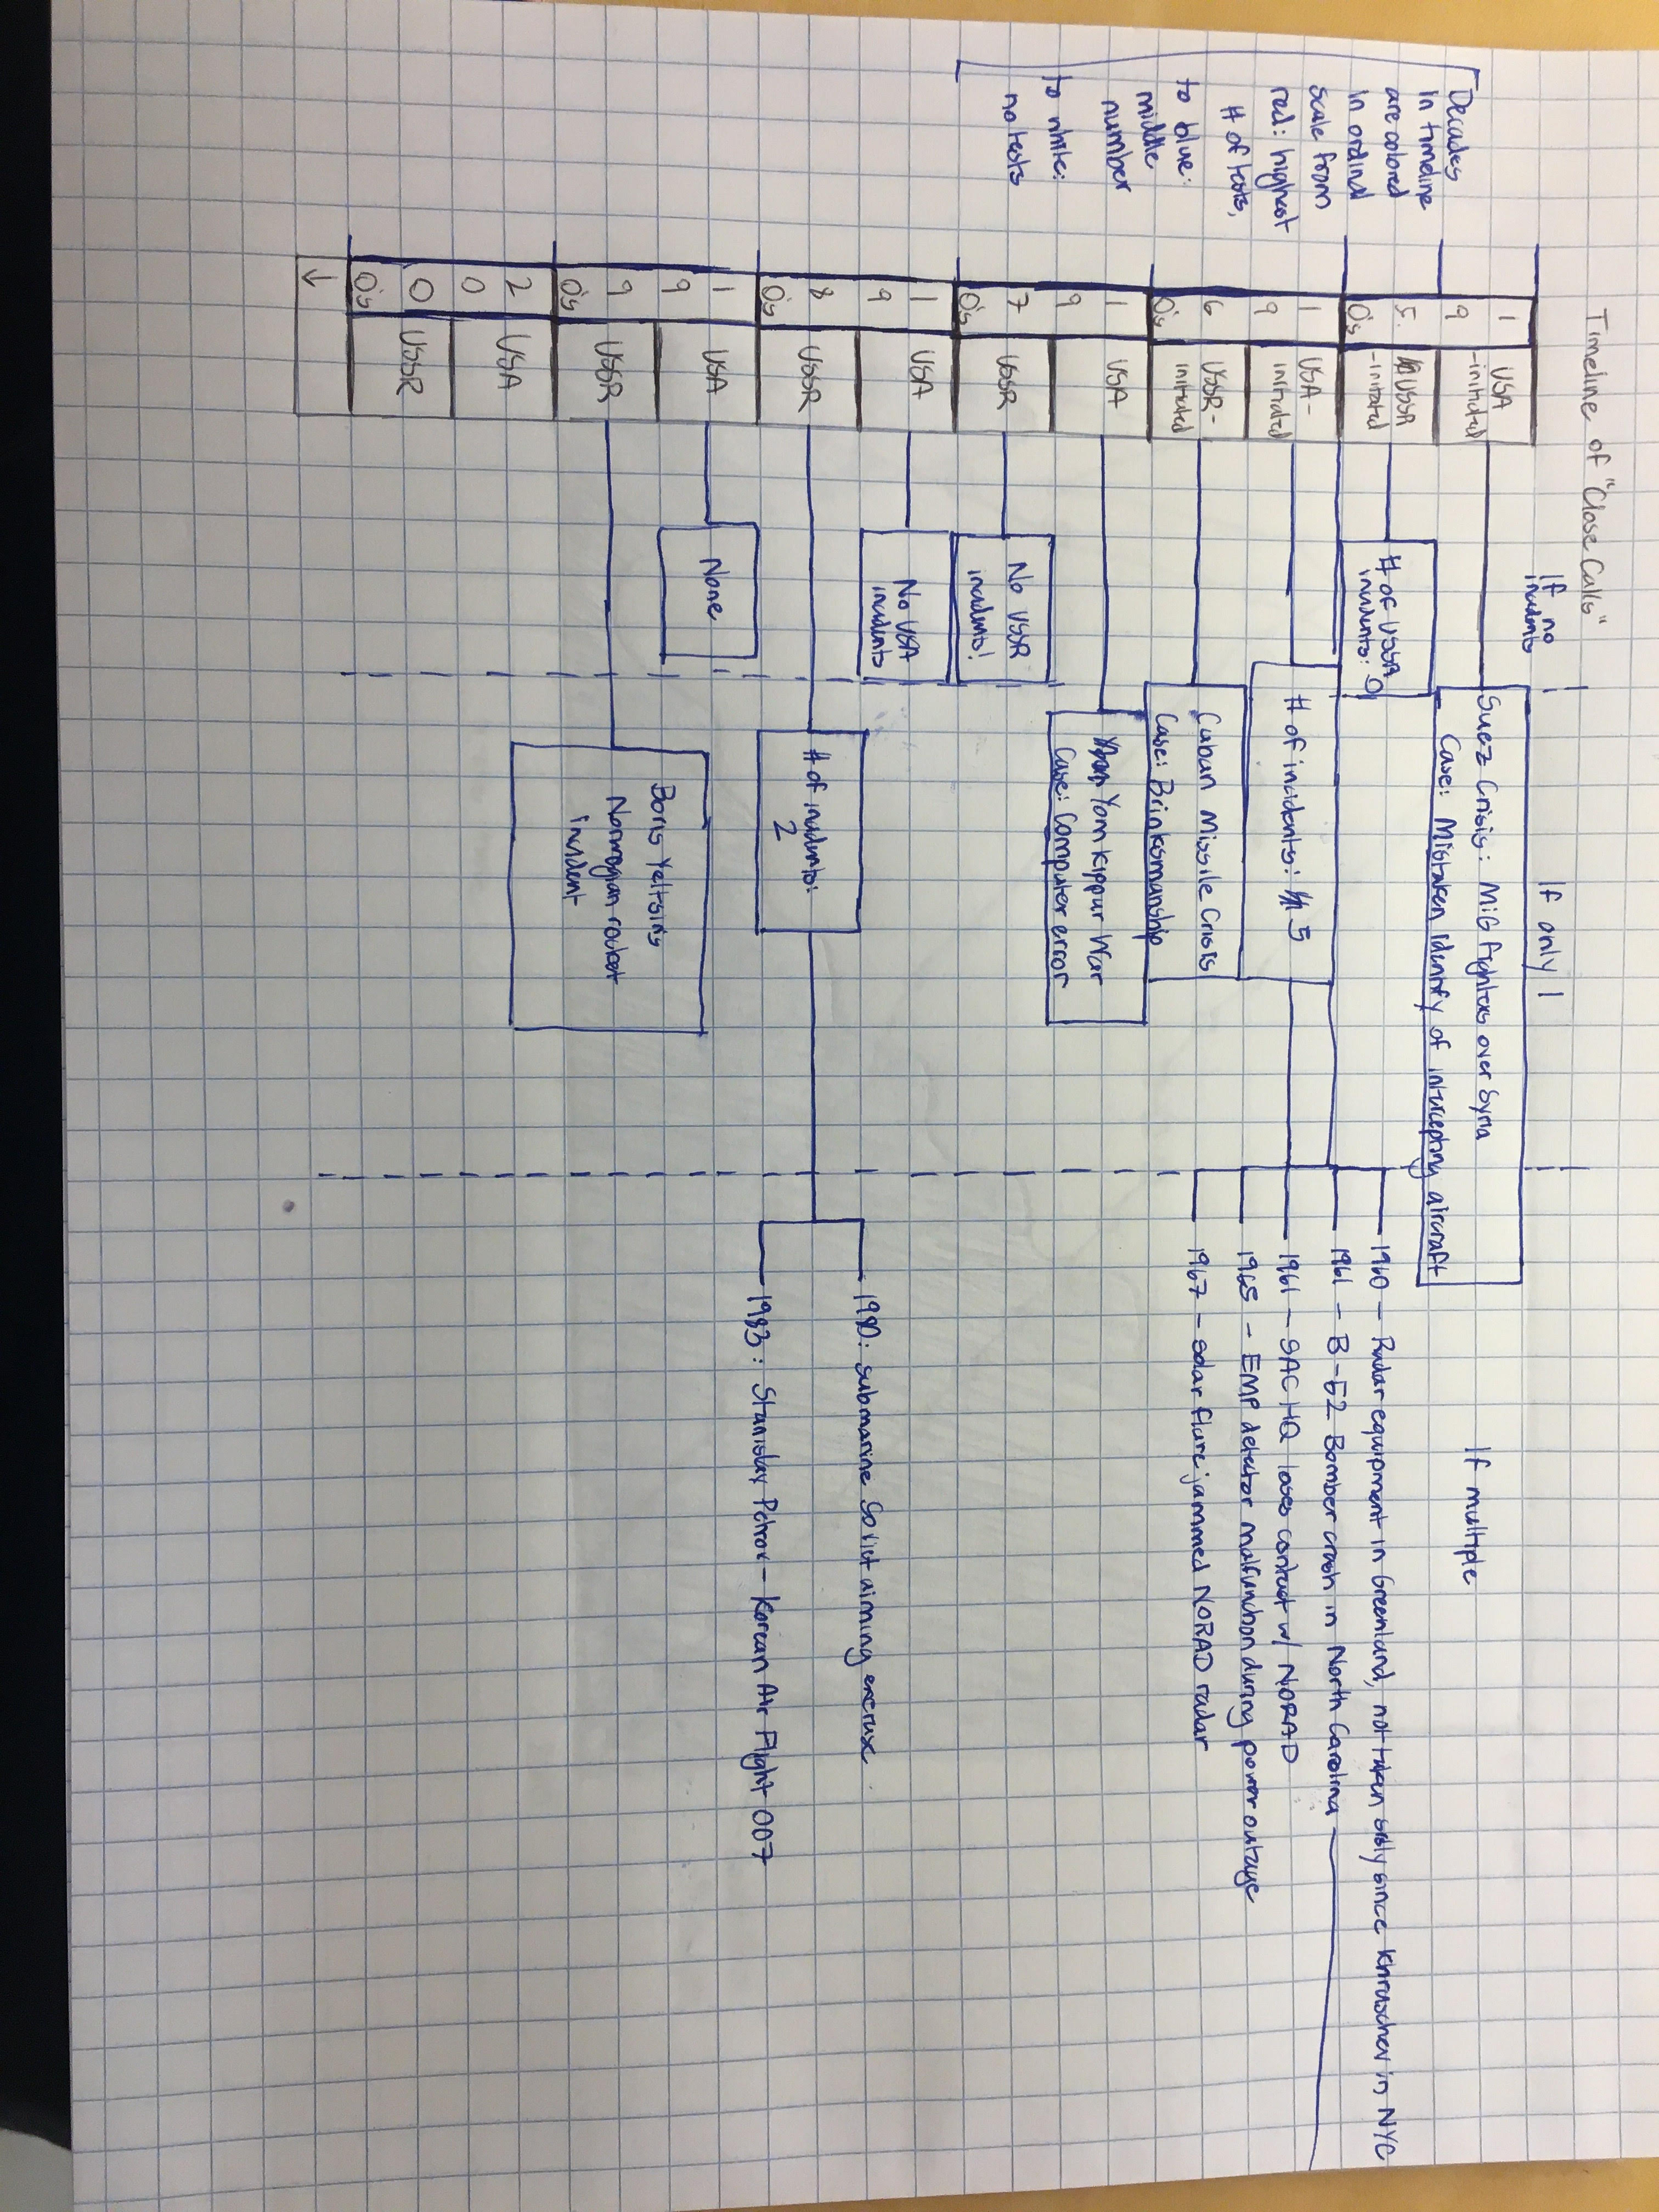 Timeline of "Close Calls"
If no
incidents
If only 1
If multiple
Decades
in timeline
are colored
in ordinal
scale from
red: highest
# of tests,
to blue:
middle
number
to white:
no tests
1
9
5
0's
USA
-initiated
Suez Crisis: MiG fighters over Syria
Case: Mistaken identity of intercepting aircraft
USSR
-initiated
# of USSR
incidents: 0
1
9
6
0's
USA-
initiated
# of incidents: 5
1960 - Radar equipment in Greenland, not taken srsly since Khruschev in NYC
1961 - B-52 Bomber crash in North Carolina
1961 - SAC HQ loses contact w/ NORAD
1965 - EMP detector malfunction during power outage
1967 - solar flare jammed NORAD radar
USSR-
initiated
Cuban Missile Crisis
Case: Brinksmanship
1
9
7
0's
USA
Yom Kippur War
Case: Computer error
USSR
No USSR
incidents!
1
9
8
0's
USA
No USA
incidents
USSR
# of incidents:
2
1980: submarine Soviet aiming exercise
1983: Stanislav Petrov - Korean Air Flight 007
1
9
9
0's
USA
None
USSR
Boris Yeltsin's
Norwegian rocket
incident
2
0
0
0's
USA
USSR
↓